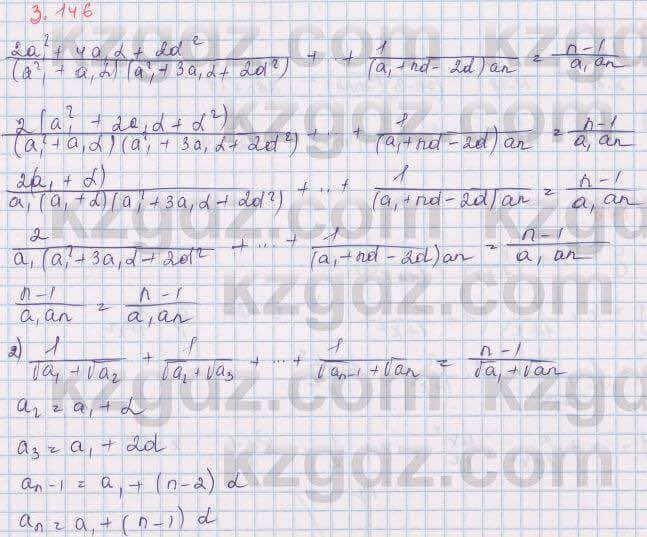 3.146
2a₁² + 4a₁d + 2d² / (a₁² + a₁d)(a₁² + 3a₁d + 2d²) + + 1 / (a₁ + nd - 2d)an = n-1 / a₁an
2(a₁² + 2a₁d + d²) / (a₁² + a₁d)(a₁² + 3a₁d + 2d²) + ... + 1 / (a₁ + nd - 2d)an = n-1 / a₁an
2(a₁ + d) / a₁(a₁ + d)(a₁² + 3a₁d + 2d²) + ... + 1 / (a₁ + nd - 2d)an = n-1 / a₁an
2 / a₁(a₁² + 3a₁d + 2d² + ... + 1 / (a₁ + nd - 2d)an = n-1 / a₁an
n-1 / a₁an = n-1 / a₁an
2) 1 / √a₁ + √a₂ + 1 / √a₂ + √a₃ + ... + 1 / √an-1 + √an = n-1 / √a₁ + √an
a₂ = a₁ + d
a₃ = a₁ + 2d
an-1 = a₁ + (n-2)d
an = a₁ + (n-1)d
kzgdz.com
kzgdz.com
kzgdz.com
kzgdz.com